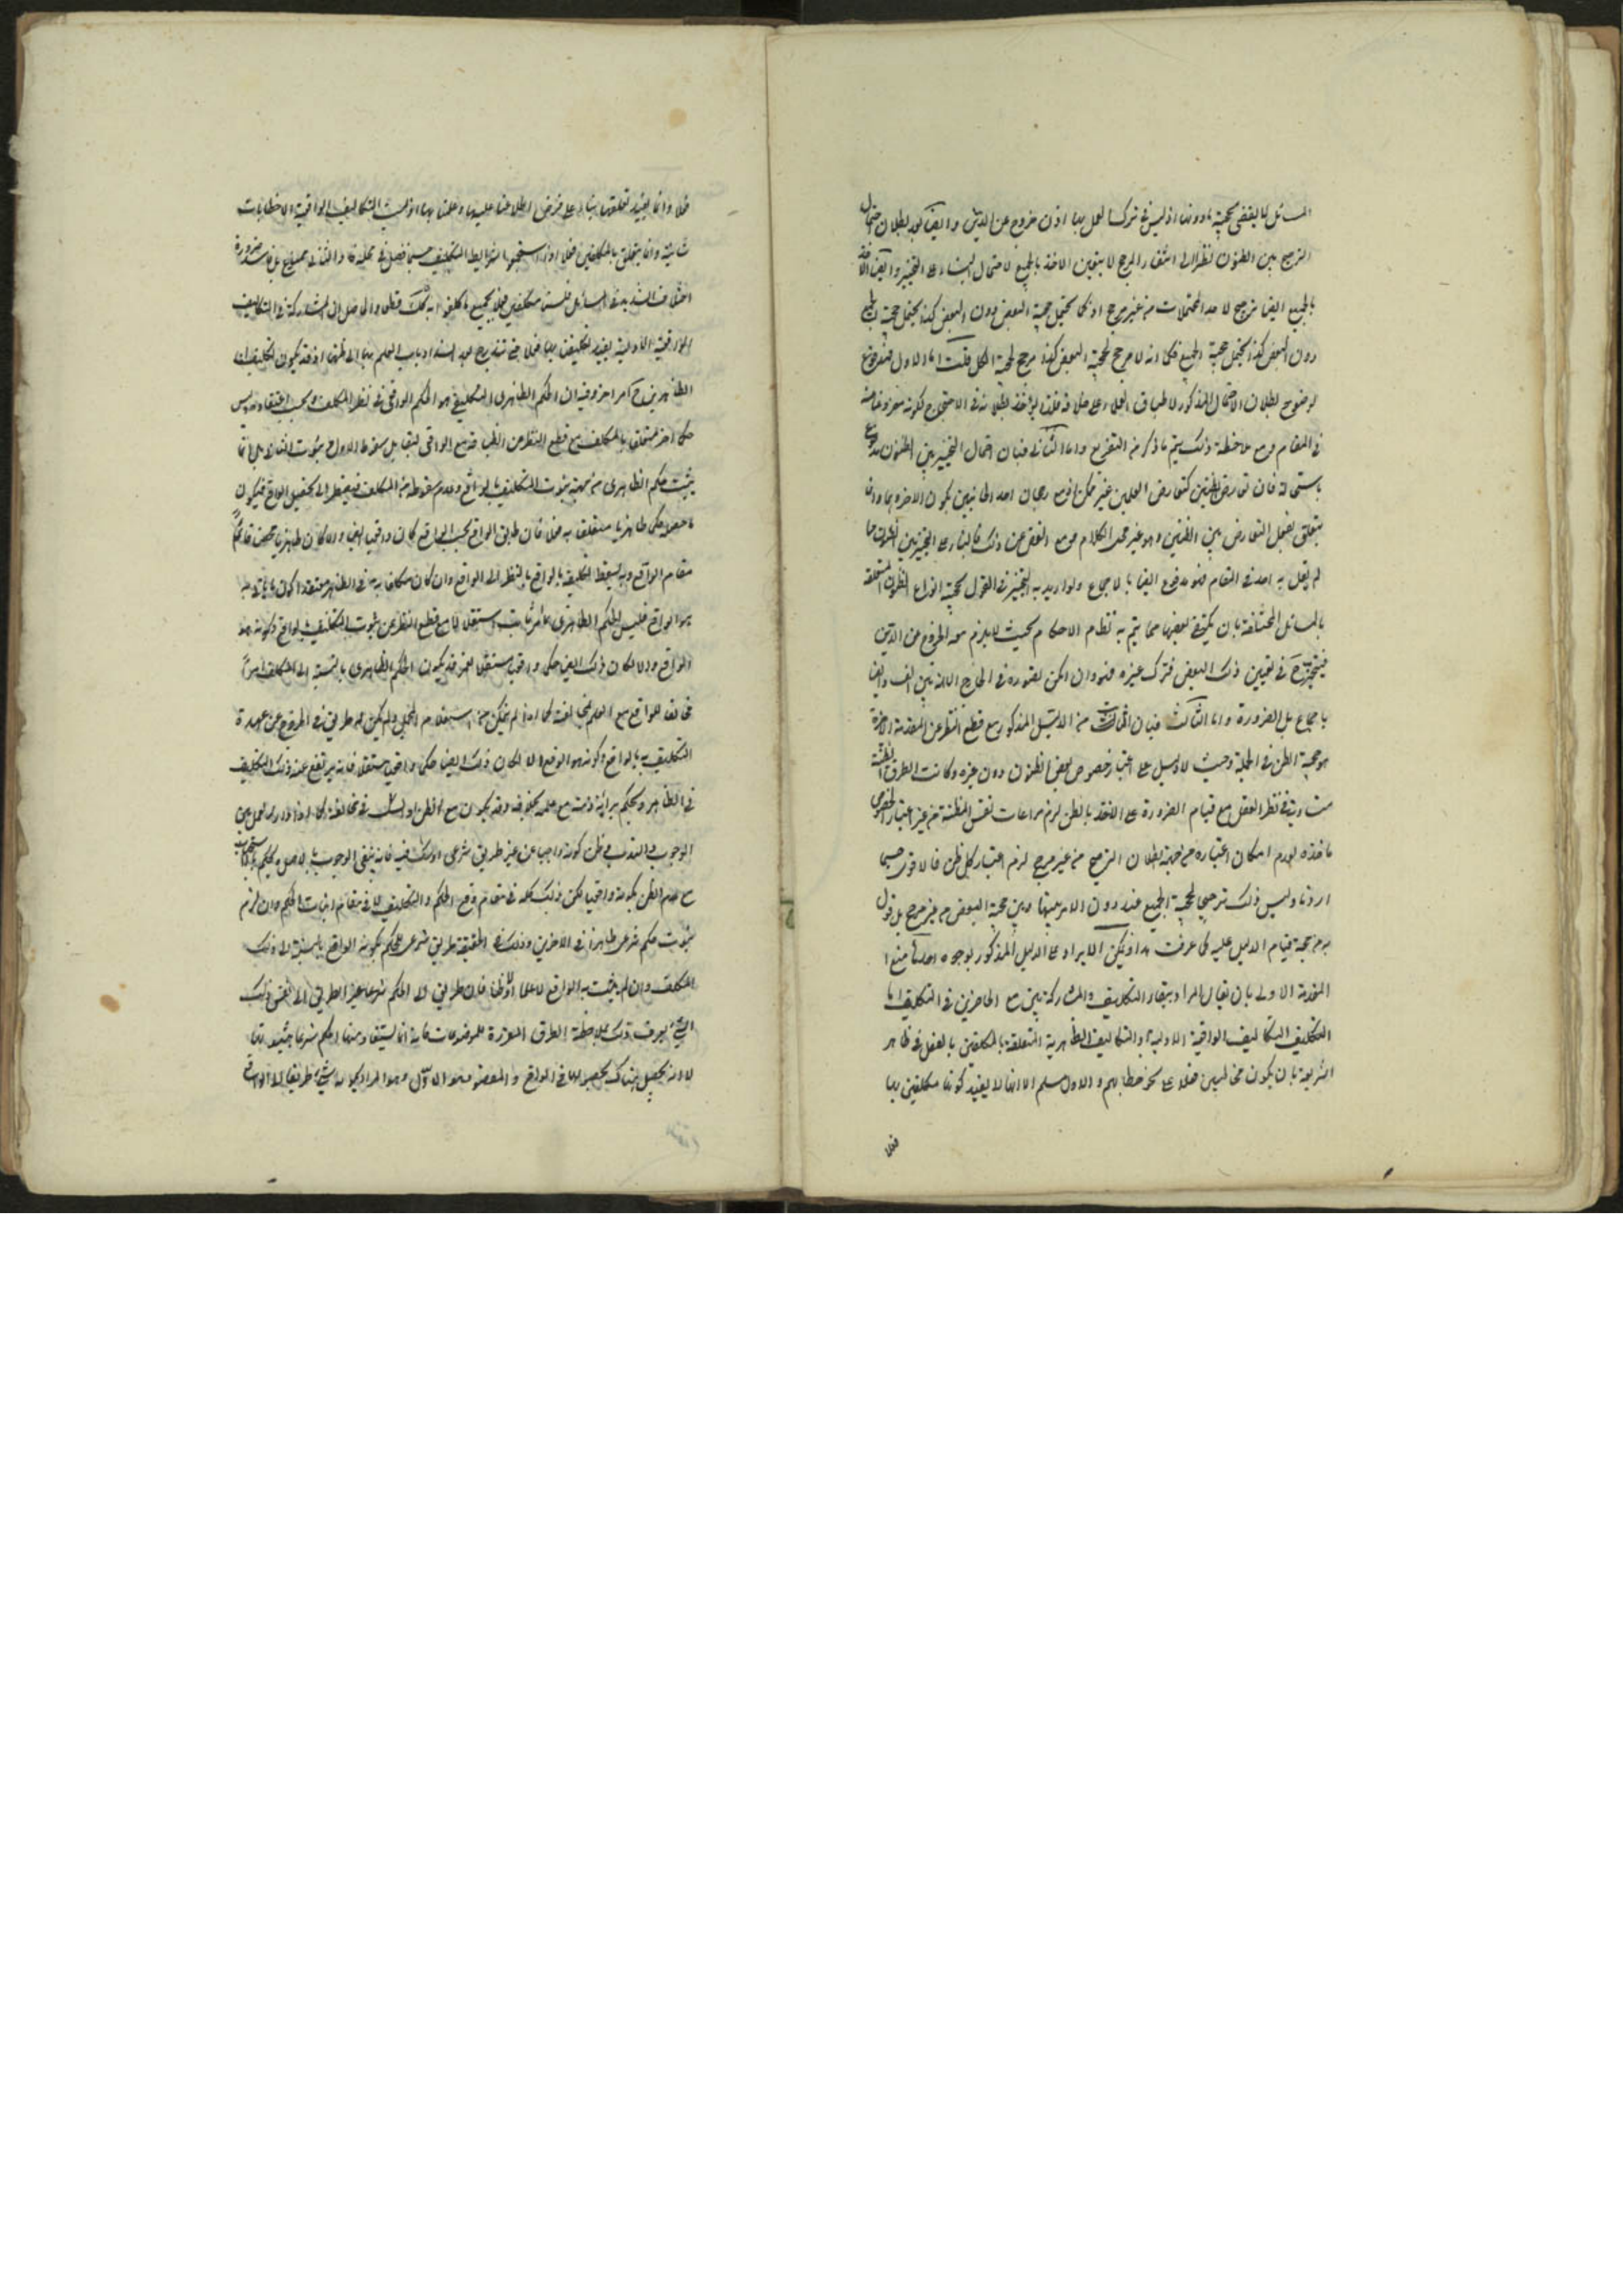 المسائل لا يقضي بحجية ما دونها اذ ليس في ترك العمل بها اذن خروج عن الدين وايضا بعد بطلان احتمال
الترجيح بين الظنون نظرا الى انتفاء المرجح لا يتعين الاخذ بالجميع لاحتمال البناء على التخيير وايضا الاخذ
بالجميع ايضا ترجيح لاحد المحتملات من غير مرجح اذ كما يحتمل حجية البعض دون البعض كذا يحتمل حجية الجميع
دون البعض كذا يحتمل حجية الجميع فكما انه لا مرجح لحجية البعض كذا لا مرجح لحجية الكل قلت اما الاول فمدفوع
لوضوح بطلان الاحتمال المذكور لاطباق العلماء على خلافه فلذا لم يؤخذ بطلانه في الاحتجاج لكونه مفروغا عنه
في المقام ومع ملاحظة ذلك يتم ما ذكر من التفريع واما الثاني فبان احتمال التخيير بين الظنون مدفوع
باستحالته فان تعارض الظنين كتعارض العلمين غير ممكن اذ مع رجحان احد الجانبين يكون الاخر موهوما وانما
يتعلق بفعل التعارض بين الظنين وهو غير محل الكلام ومع الغض عن ذلك فالبناء على التخيير بين الظنون مما
لم يقل به احد في المقام فهو مدفوع ايضا بالاجماع ولو اريد به التخيير في القول بحجية انواع الظنون المتعلقة
بالمسائل المختلفة بان يكتفي ببعضها مما يتم به نظام الاحكام بحيث لا يلزم معه الخروج عن الدين
فيتخير ح في تعيين ذلك البعض وترك غيره فهو وان امكن تصوره في الخارج الا انه بين الفساد ايضا
باجماع بل الضرورة واما الثالث فبان الثابت من الدليل المذكور مع قطع النظر عن المقدمة الاخيرة
هو حجية الظن في الجملة وحيث لا دليل على اعتبار خصوص بعض الظنون دون غيره وكانت الطرق الظنية
متساوية في نظر العقل مع قيام الضرورة على الاخذ بالظن لزم مراعات نفس المظنة من غير اعتبار لخصوص
ماخذه لعدم امكان اعتباره من جهة بطلان الترجيح من غير مرجح لزم اعتبار كل ظن فالاقوى حسبما
اردنا وليس ذلك ترجيحا لحجية الجميع عند دوران الامر بينها وبين حجية البعض من غير مرجح بل قول
به من جهة قيام الدليل عليه كما عرفت هذا ويمكن الايراد على الدليل المذكور بوجوه احدها منع
المقدمة الاولى بان يقال المراد ببقاء التكليف والمشاركة بين مع الحاضرين في التكليف اما
التكليف التكاليف الواقعية الاولية او التكاليف الظاهرية المتعلقة بالمكلفين بالفعل في ظاهر
الشريعة بان يكون مخاطبين فعلا على نحو خطابهم والاول مسلم الا انه لا يفيد كوننا مكلفين بها
فعلا
فعلا وانما يفيد تعلقها بنا على فرض اطلاعنا عليها وعلمنا بها اذ ليست التكاليف الواقعية الا خطابات
شانية وانما يتعلق بالمكلفين فعلا اذا استجمعوا شرايط التكليف حسبما فصل في محله واما الثاني فممنوع بل فاسد ضرورة
اختلاف الشديد في المسائل فلسنا مكلفين فعلا بجميع ما كلفوا به كذلك قطعا والحاصل ان المشاركة في التكاليف
الواقعية الاولية لا يفيد تكليفنا بها فعلا حتى يندرج بعد انسداد باب العلم بها الى ظنها اذ قد يكون تكليفنا
الظاهري ح امرا اخر وفيه ان الحكم الظاهري التكليفي هو الحكم الواقعي في نظر المكلف وبحسب اعتقاده وليس
حكما اخر متعلقا بالمكلف مع قطع النظر عن انطباقه مع الواقعي ليقابل سقوط الاول وثبوت الثاني بل انما
يثبت الحكم الظاهري من جهة ثبوت التكليف بالواقع وعدم سقوطه من المكلف فيضطر الى تحصيل الواقع فيكون
ما حصله حكما ظاهريا متعلقا به فعلا فان طابق الواقع بحسب الواقع كان واقعيا ايضا والا كان ظاهريا محضا قائما
مقام الواقع وبه يسقط تكليفه بالواقع بالنظر الى الواقع وان كان مكلفا به في الظاهر معتقدا كون ما ياتي به
هو الواقع فليس الحكم الظاهري امرا ثابتا مستقلا مع قطع النظر عن ثبوت التكليف بالواقع وكونه هو
الواقع والا لكان ذلك ايضا حكما واقعيا مستقلا نعم قد يكون الحكم الظاهري بالنسبة الى المكلف امرا
مخالفا للواقع مع العلم بمخالفته كما اذا لم يتمكن من استعلام المجمل ولم يكن له طريق في الخروج عن عهدة
التكليف به بالواقع وكونه هو الواقع والا لكان ذلك ايضا حكما واقعيا مستقلا فانه يرتفع عنه ذلك التكليف
في الظاهر ويحكم ببرائة ذمته مع علمه بخلافه وقد يكون مع الظن او الشك في مخالفته كما اذا دار العمل بين
الوجوب والندب وظن كونه واجبا عن غير طريق شرعي او شك فيه فانه ينفي الوجوب بالاصل ويحكم بالاستحباب
مع عدم الظن بكونه واقعيا لكن ذلك كله في مقام رفع الحكم والتكليف لا في مقام اثبات الحكم وان لزم
ثبوت حكم شرعي ظاهرا في الاخرين وذلك في الحقيقة طريق شرعي للحكم بكونه الواقع بالنسبة الى ذلك
المكلف وان لم يثبت به الواقع لا علما ولا ظنا فان طريق الى الحكم شرعا غير الطريق الى نفس ذلك
الشيء يعرف ذلك بملاحظة الطرق المقررة للموضوعات فانه انما يستفاد منها الحكم شرعا بثبوتها
لا انه يحصل هناك تحصيلها في الواقع والمقصود هو الاول وهو المراد بكون الشيء طريقا الى الواقع